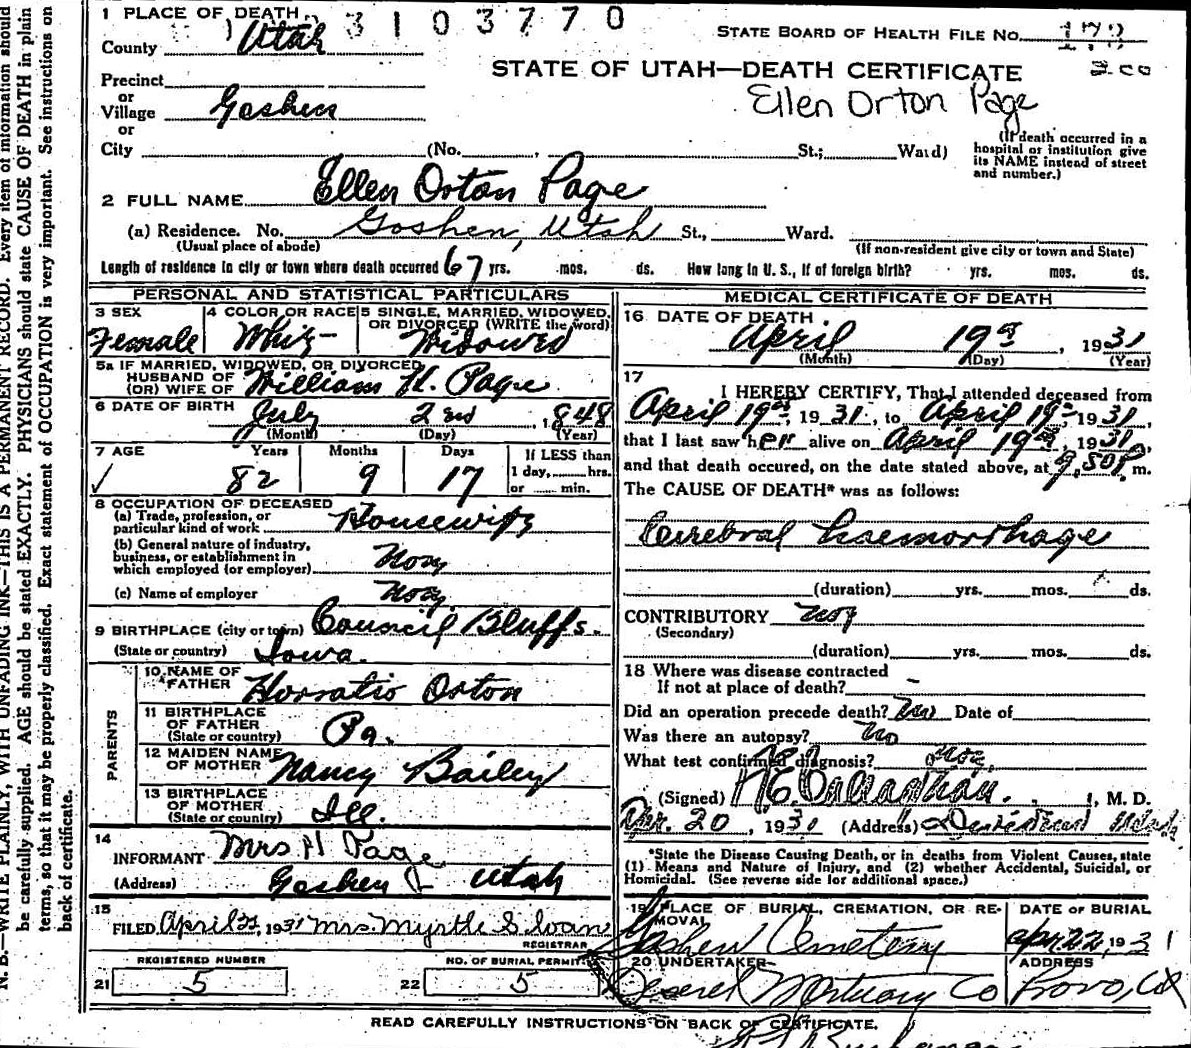 1 PLACE OF DEATH
3103770
County Utah
STATE BOARD OF HEALTH FILE No.
STATE OF UTAH—DEATH CERTIFICATE
Ellen Orton Page
Precinct
or
Village Goshen
or
City (No. , St.; Ward)
(If death occurred in a
hospital or institution give
its NAME instead of street
and number.)
2 FULL NAME Ellen Orton Page
(a) Residence. No. Goshen, Utah St., Ward.
(Usual place of abode) (If non-resident give city or town and State)
Length of residence in city or town where death occurred 67 yrs. mos. ds. How long in U. S., if of foreign birth? yrs. mos. ds.
PERSONAL AND STATISTICAL PARTICULARS
3 SEX 4 COLOR OR RACE 5 SINGLE, MARRIED, WIDOWED,
OR DIVORCED (WRITE the word)
Female White Widowed
5a IF MARRIED, WIDOWED, OR DIVORCED
HUSBAND OF
(OR) WIFE OF William H. Page
6 DATE OF BIRTH July 2nd , 1848
(Month) (Day) (Year)
7 AGE Years Months Days If LESS than
1 day, hrs.
or min.
82 9 17
8 OCCUPATION OF DECEASED
(a) Trade, profession, or
particular kind of work Housewife
(b) General nature of industry,
business, or establishment in
which employed (or employer)
(c) Name of employer
9 BIRTHPLACE (city or town) Council Bluffs.
(State or country) Iowa.
PARENTS
10 NAME OF
FATHER Horratio Orton
11 BIRTHPLACE
OF FATHER
(State or country) Pa.
12 MAIDEN NAME
OF MOTHER Nancy Bailey
13 BIRTHPLACE
OF MOTHER
(State or country) Ill.
14
INFORMANT Mrs H Page
(Address) Goshen Utah
15
FILED April 22, 1931 Mrs. Myrtle Sloan
REGISTRAR
REGISTERED NUMBER NO. OF BURIAL PERMIT
21 5 22 5
MEDICAL CERTIFICATE OF DEATH
16 DATE OF DEATH
April 19 , 1931
(Month) (Day) (Year)
17
I HEREBY CERTIFY, That I attended deceased from
April 19, 1931, to April 19, 1931,
that I last saw her alive on April 19, 1931,
and that death occured, on the date stated above, at 9.50P m.
The CAUSE OF DEATH* was as follows:
Cerebral haemorrhage
(duration) yrs. mos. ds.
CONTRIBUTORY
(Secondary)
(duration) yrs. mos. ds.
18 Where was disease contracted
If not at place of death? -
Did an operation precede death? No Date of
Was there an autopsy? No
What test confirmed diagnosis?
(Signed) , M. D.
Apr. 20, 1931 (Address) Dividend Utah
*State the Disease Causing Death, or in deaths from Violent Causes, state
(1) Means and Nature of Injury, and (2) whether Accidental, Suicidal, or
Homicidal. (See reverse side for additional space.)
19 PLACE OF BURIAL, CREMATION, OR RE-
MOVAL DATE OF BURIAL
Goshen Cemetery Apr 22, 1931
20 UNDERTAKER ADDRESS
Mortuary Co Provo, Ut
READ CAREFULLY INSTRUCTIONS ON BACK OF CERTIFICATE.
N. B.—WRITE PLAINLY, WITH UNFADING INK—THIS IS A PERMANENT RECORD. Every item of information should
be carefully supplied. AGE should be stated EXACTLY. PHYSICIANS should state CAUSE OF DEATH in plain
terms, so that it may be properly classified. Exact statement of OCCUPATION is very important. See instructions on
back of certificate.